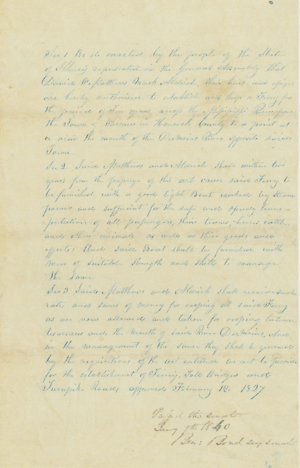 Sec 1 Be it enacted by the people of the State
of Illinois represented in the General Assembly that
Mathews Aldrich, their heirs and assigns
are hereby authorized to establish and keep a Ferry for
the period of ten years across the Mississippi River from
the town of in Hancock County to a point at
or near the mouth of the Desmoine River opposite
Town.
Sec 2 Said Mathews and Aldrich shall within two
years from the passage of this act cause said Ferry to
be furnished with a good tight Boat worked by steam
power and sufficient for the safe and speedy trans
portation of all passengers, their teams, horses, cattle,
and other animals as well as their goods and
effects: And said Boat shall be furnished with
men of suitable strength and skill to manage
the same.
Sec 3 Said Mathews and Aldrich shall receive such
rates and sums of money for crossing at said Ferry
as are now allowed and taken for crossing between
and the mouth of said River Desmoine, And
in the management of the same they shall be governed
by the requisitions of the act entitled an act to provide
for the establishment of Ferries, Toll Bridges and
Turnpike Roads approved February 12. 1827
Passed the Senate
Jany 1840
Ben: Bond secy senate